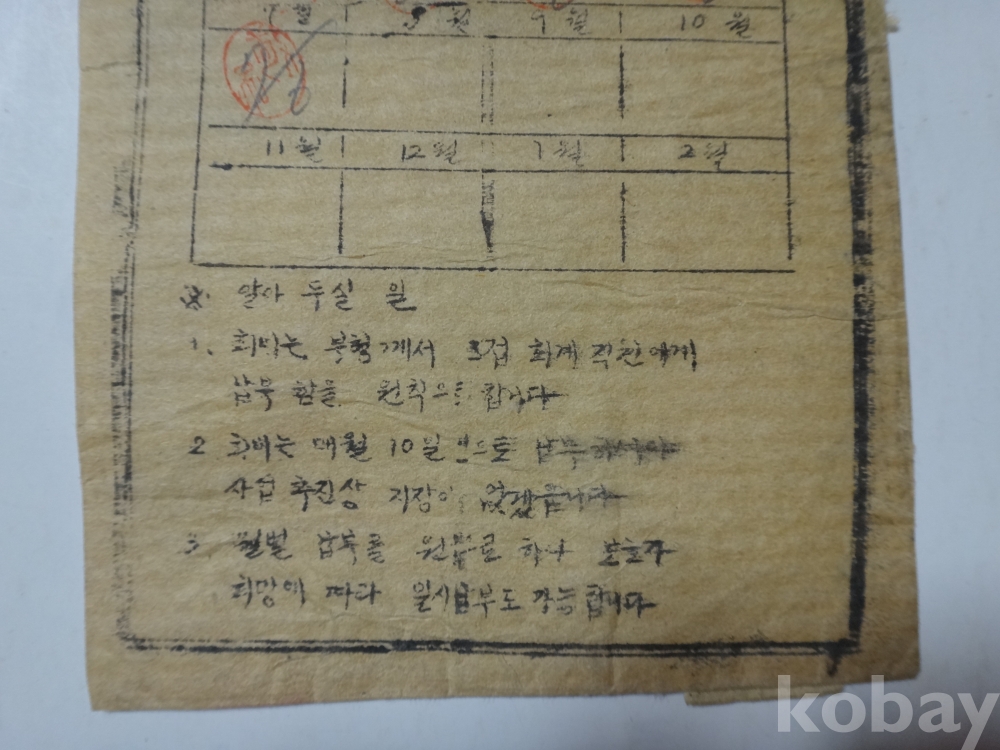 월 월 9월 10월
11월 12월 1월 2월
※ 알아 두실 일
1. 회비는 부형께서 직접 회계 직원에게
납부 함을 원칙으로 합니다
2 회비는 매월 10일 안으로 납부 하셔야
사업 추진상 지장이 없겠습니다
3 월별 납부를 원칙으로 하나 보호자
희망에 따라 일시납부도 가능합니다
kobay